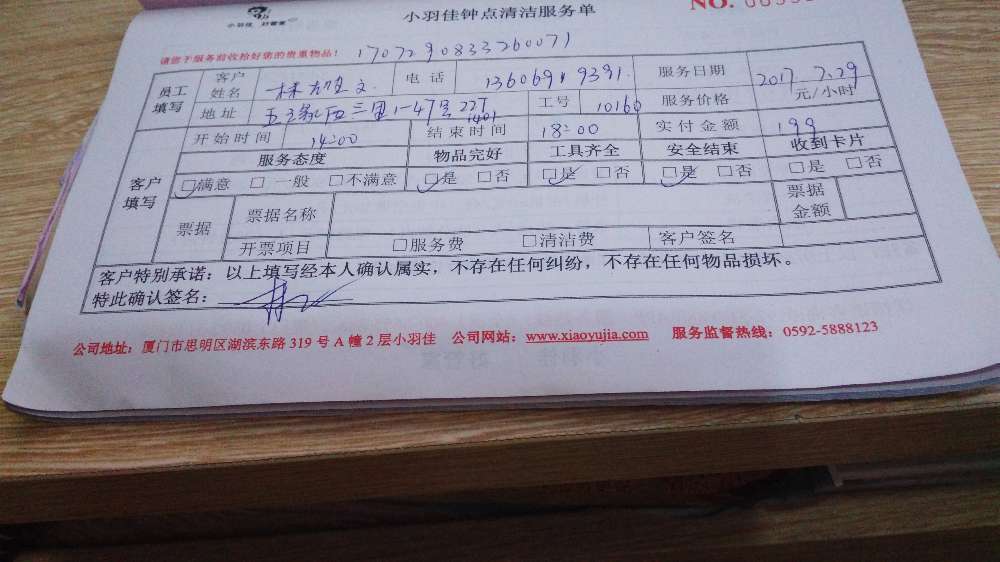 小羽佳钟点清洁服务单 NO.
小羽佳 好管家
请您于服务前收拾好您的贵重物品! 1707290833260071
员工填写 客户姓名 林 文 电话 136069 9391 服务日期 2017.7.29
地址 五缘西三里1-47号22T 1401 工号 10160 服务价格 元/小时
客户填写 开始时间 14:00 结束时间 18:00 实付金额 199
服务态度 物品完好 工具齐全 安全结束 收到卡片
□满意 □一般 □不满意 □是 □否 □是 □否 □是 □否 □是 □否
票据 票据名称 票据金额
开票项目 □服务费 □清洁费 客户签名
客户特别承诺:以上填写经本人确认属实,不存在任何纠纷,不存在任何物品损坏。
特此确认签名:
公司地址:厦门市思明区湖滨东路 319 号 A 幢 2 层小羽佳 公司网站:www.xiaoyujia.com 服务监督热线:0592-5888123